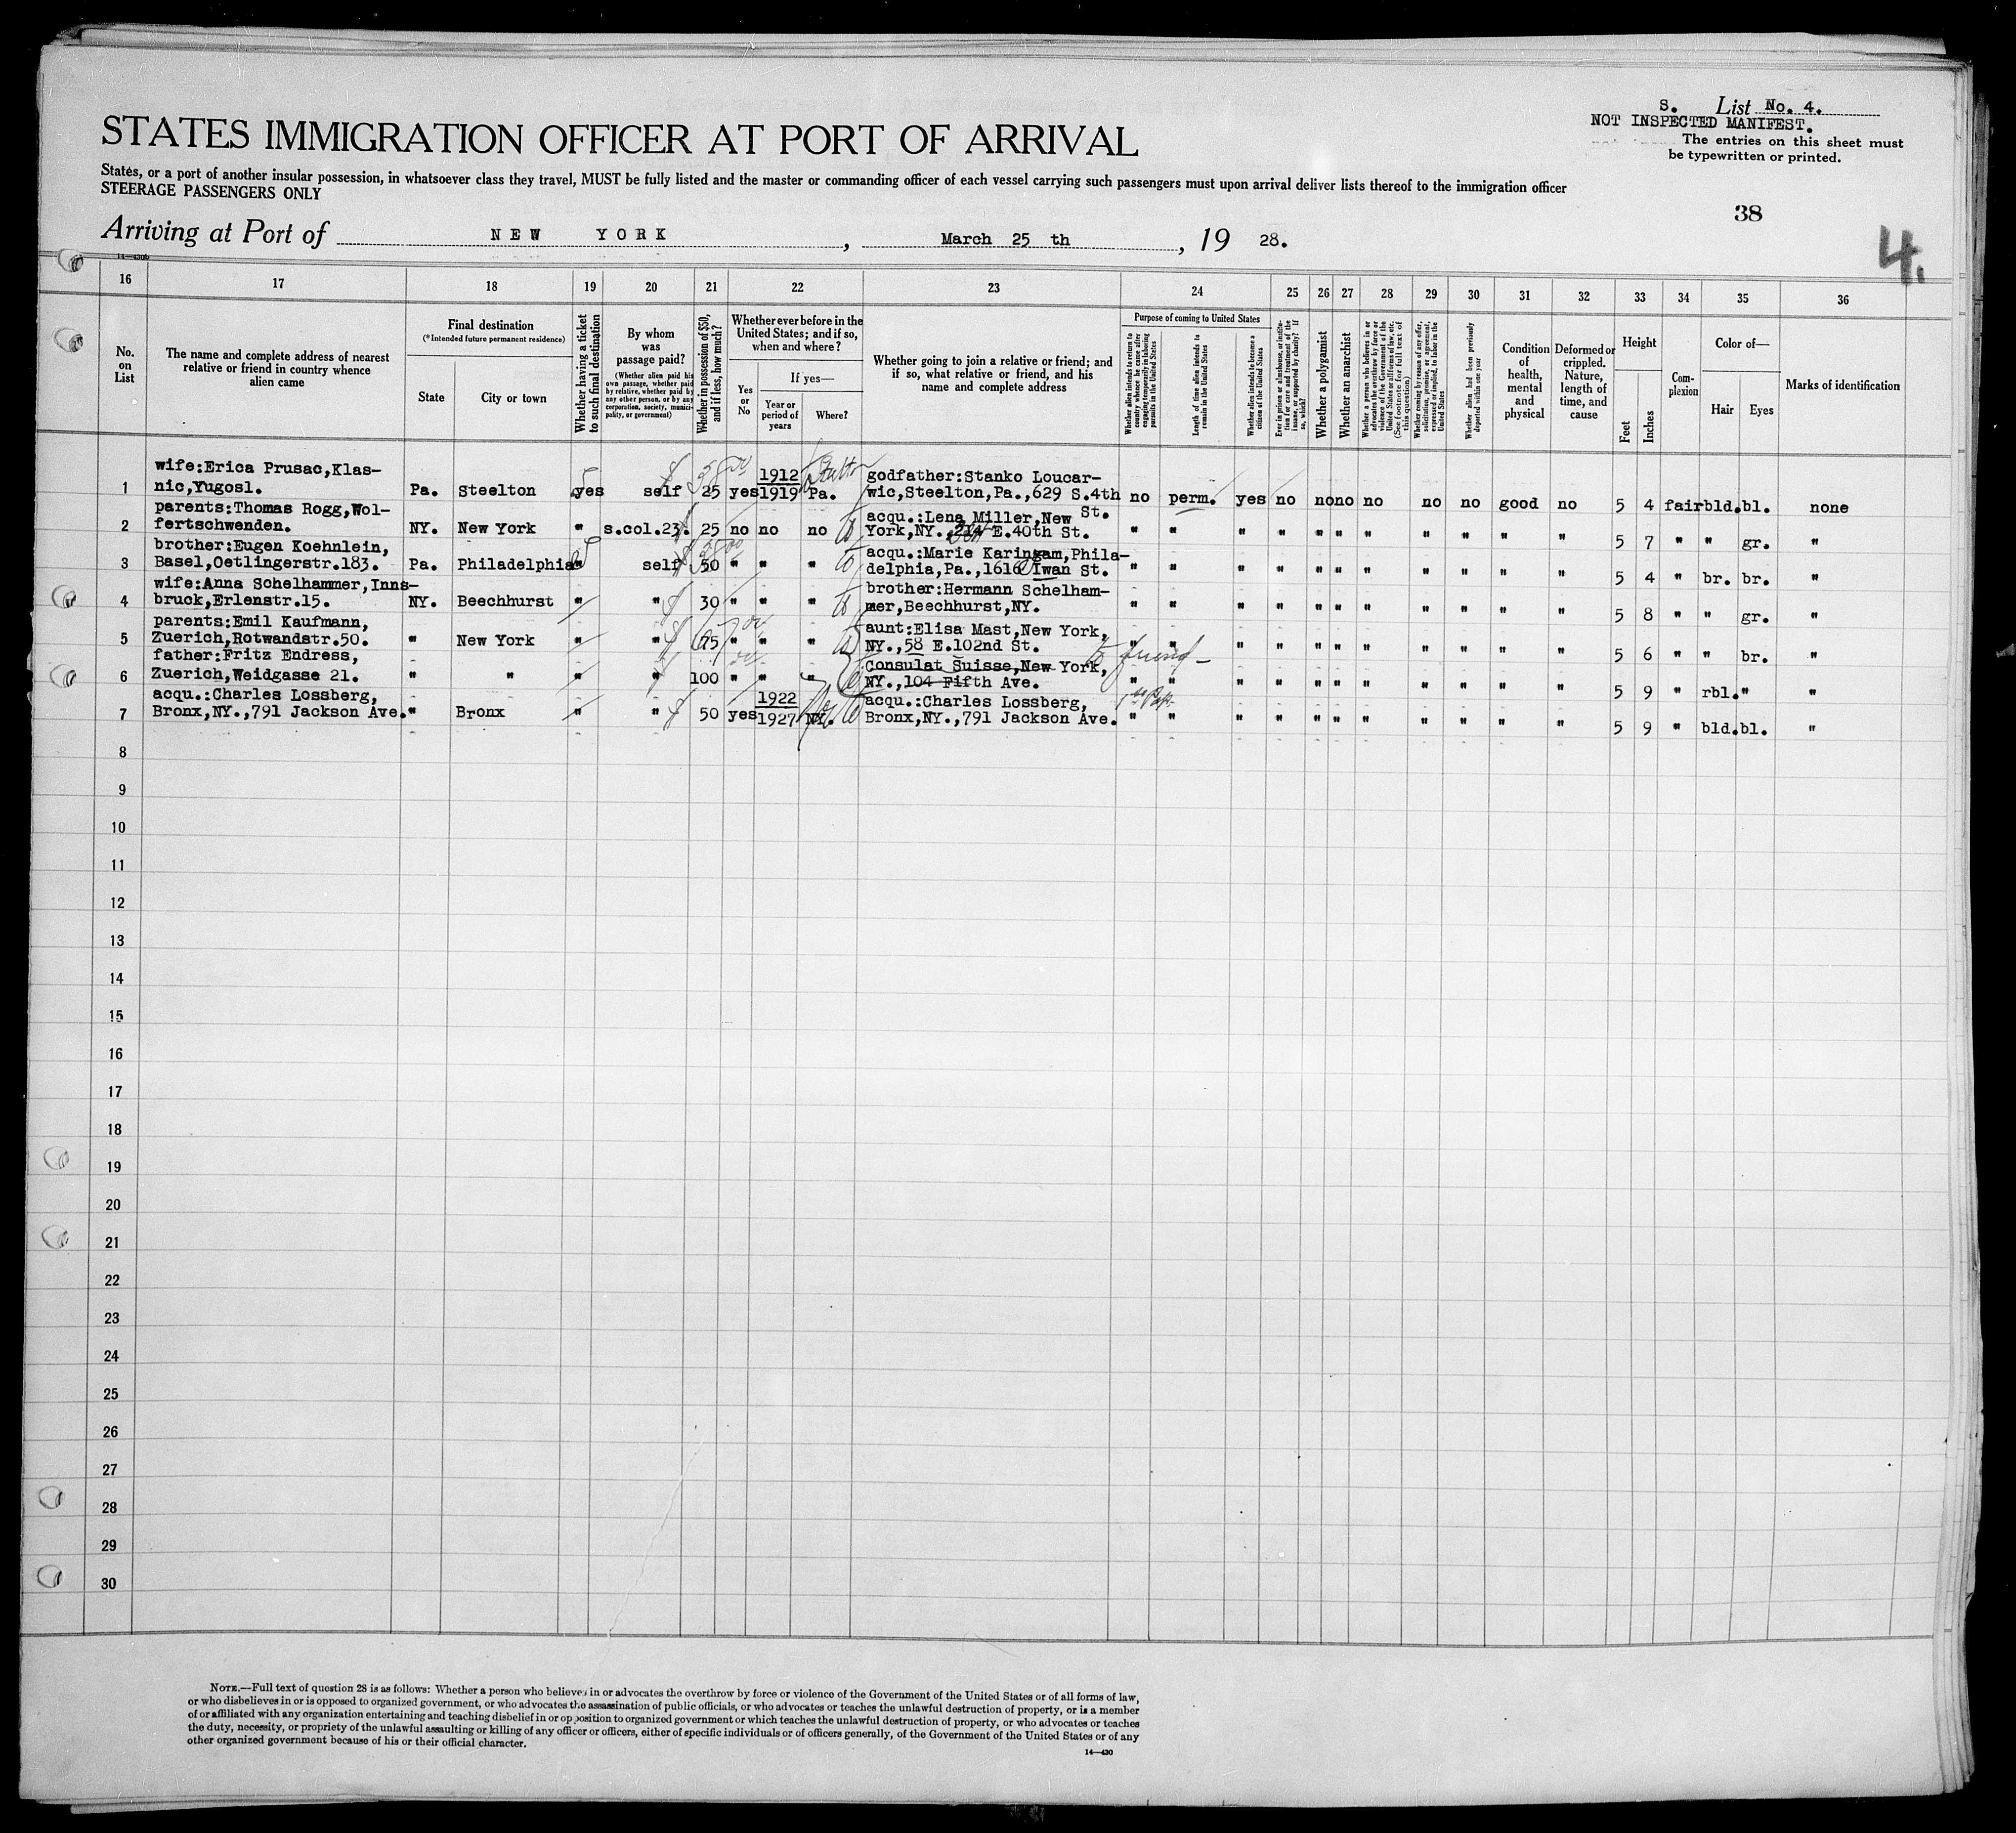 S. List No. 4.
NOT INSPECTED MANIFEST.
The entries on this sheet must
be typewritten or printed.
STATES IMMIGRATION OFFICER AT PORT OF ARRIVAL
States, or a port of another insular possession, in whatsoever class they travel, MUST be fully listed and the master or commanding officer of each vessel carrying such passengers must upon arrival deliver lists thereof to the immigration officer
STEERAGE PASSENGERS ONLY
38
4.
Arriving at Port of NEW YORK, March 25 th, 19 28.
16 17 18 19 20 21 22 23 24 25 26 27 28 29 30 31 32 33 34 35 36
No. on List
The name and complete address of nearest
relative or friend in country whence
alien came
Final destination
(*Intended future permanent residence)
State
City or town
Whether having a ticket
to such final destination
By whom
was
passage paid?
(Whether alien paid his
own passage, whether paid
by relative, whether paid by
any other person, or by any
corporation, society, munici-
pality, or government)
Whether in possession of $50,
and if less, how much?
Whether ever before in the
United States; and if so,
when and where?
Yes or No
If yes—
Year or
period of
years
Where?
Whether going to join a relative or friend; and
if so, what relative or friend, and his
name and complete address
Purpose of coming to United States
Whether alien intends to return to
country whence he came after
engaging temporarily in laboring
pursuits in the United States
Length of time alien intends to
remain in the United States
Whether alien intends to become a
citizen of the United States
Ever in prison or almshouse, or institu-
tion for care and treatment of the
insane, or supported by charity? If
so, which?
Whether a polygamist
Whether an anarchist
Whether a person who believes in or
advocates the overthrow by force or
violence of the Government of the
United States or all forms of law, etc.
(See footnote for full text of
this question)
Whether coming by reason of any offer,
solicitation, promise, or agreement,
expressed or implied, to labor in the
United States
Whether alien had been previously
deported within one year
Condition
of
health,
mental
and
physical
Deformed or
crippled.
Nature,
length of
time, and
cause
Height
Feet
Inches
Com-
plexion
Color of—
Hair
Eyes
Marks of identification
wife:Erica Prusac,Klas-
1 nic,Yugosl. Pa. Steelton yes self 25 yes 1912 1919 Pa. godfather:Stanko Loucar-
wic,Steelton,Pa.,629 S.4th St. no perm. yes no no no no no no good no 5 4 fair bld. bl. none
parents:Thomas Rogg,Wol-
2 fertschwenden. NY. New York " s.col.23. 25 no no no acqu.:Lena Miller,New
York,NY., E.40th St. " " " " " " " " " " " 5 7 " " gr. "
brother:Eugen Koehnlein,
3 Basel,Oetlingerstr.183. Pa. Philadelphia " self 50 " " " acqu.:Marie Karingam,Phila-
delphia,Pa.,1616 Iwan St. " " " " " " " " " " " 5 4 " br. br. "
wife:Anna Schelhammer,Inns-
4 bruck,Erlenstr.15. NY. Beechhurst " " 30 " " " brother:Hermann Schelham-
mer,Beechhurst,NY. " " " " " " " " " " " 5 8 " " gr. "
parents:Emil Kaufmann,
5 Zuerich,Rotwandstr.50. " New York " " 75 " " " aunt:Elisa Mast,New York,
NY.,58 E.102nd St. " " " " " " " " " " " 5 6 " " br. "
to friend
father:Fritz Endress,
6 Zuerich,Weidgasse 21. " " " " 100 " " " Consulat Suisse,New York,
NY.,104 Fifth Ave. " " " " " " " " " " " 5 9 " rbl. " "
acqu.:Charles Lossberg,
7 Bronx,NY.,791 Jackson Ave. " Bronx " " 50 yes 1922 1927 NY. acqu.:Charles Lossberg,
Bronx,NY.,791 Jackson Ave. " " " " " " " " " " " 5 9 " bld. bl. "
8
9
10
11
12
13
14
15
16
17
18
19
20
21
22
23
24
25
26
27
28
29
30
NOTE.—Full text of question 28 is as follows: Whether a person who believes in or advocates the overthrow by force or violence of the Government of the United States or of all forms of law,
or who disbelieves in or is opposed to organized government, or who advocates the assassination of public officials, or who advocates or teaches the unlawful destruction of property, or is a member
of or affiliated with any organization entertaining and teaching disbelief in or opposition to organized government or which teaches the unlawful destruction of property, or who advocates or teaches
the duty, necessity, or propriety of the unlawful assaulting or killing of any officer or officers, either of specific individuals or of officers generally, of the Government of the United States or of any
other organized government because of his or their official character.
14—430